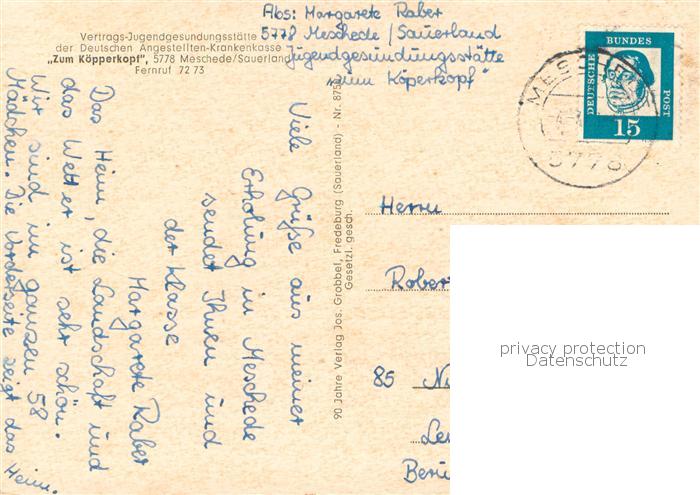 Vertrags-Jugendgesundungsstätte
der Deutschen Angestellten-Krankenkasse
„Zum Köpperkopf", 5778 Meschede/Sauerland
Fernruf 72 73
Abs: Margarete Raber
5778 Meschede/Sauerland
Jugendgesundungsstätte
"zum Köperkopf"
DEUTSCHE
BUNDES
POST
15
5778
Viele Grüße aus meiner
Erholung in Meschede
sendet Ihnen und
der Klasse
Margarete Raber
Das Heim, die Landschaft und
das Wetter ist sehr schön.
Wir sind im ganzen 58
Mädchen. Die Vorderseite zeigt das Heim.
90 Jahre Verlag Jos. Grobbel, Fredeburg (Sauerland) - Nr. 875
Gesetzl. gesch.
Herrn
Rober
85 Nü
Ler
Beru
privacy protection
Datenschutz